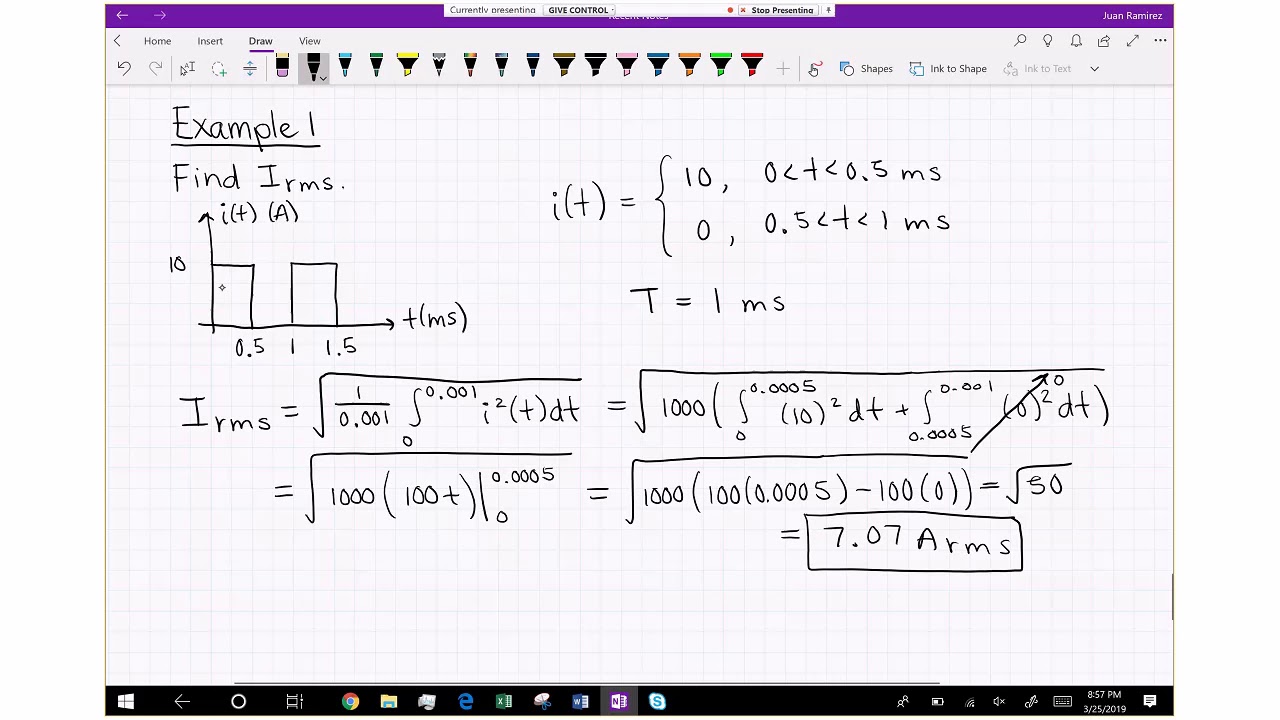 Currently presenting GIVE CONTROL Stop Presenting
Recent Notes Juan Ramirez
Home Insert Draw View
Shapes Ink to Shape Ink to Text
Example 1
Find Irms.
i(t) (A)
10
t(ms)
0.5 1 1.5
i(t) = { 10, 0<t<0.5 ms
0, 0.5<t<1 ms
T = 1 ms
Irms = √(1/0.001 ∫₀^0.001 i²(t)dt) = √(1000(∫₀^0.0005 (10)² dt + ∫_0.0005^0.001 (0)² dt)) 0
= √(1000(100t)|₀^0.0005) = √(1000(100(0.0005) − 100(0))) = √50
= 7.07 Arms
8:57 PM
3/25/2019